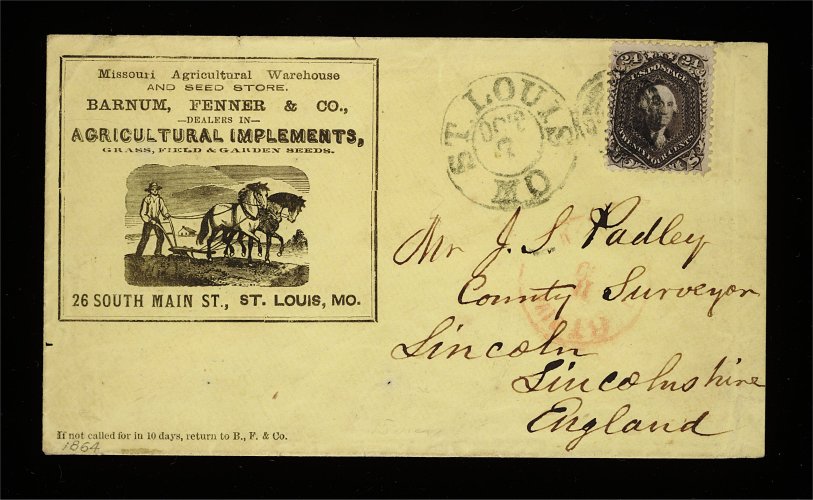 Missouri Agricultural Warehouse
AND SEED STORE.
BARNUM, FENNER & CO.,
—DEALERS IN—
AGRICULTURAL IMPLEMENTS,
GRASS, FIELD & GARDEN SEEDS.
26 SOUTH MAIN ST., ST. LOUIS, MO.
If not called for in 10 days, return to B., F. & Co.
1864
ST. LOUIS
MO
24 24
U.S. POSTAGE
TWENTY FOUR CENTS
Mr J. S. Padley
County Surveyor
Lincoln
Lincolnshire
England